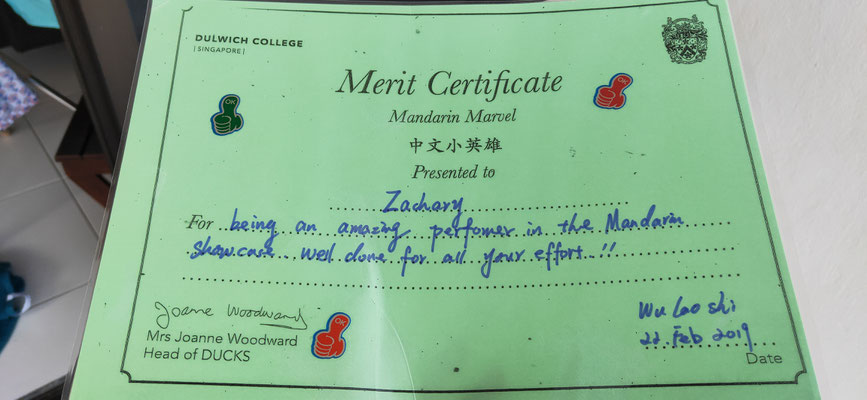 DULWICH COLLEGE
| SINGAPORE |
Merit Certificate
OK
OK
Mandarin Marvel
中文小英雄
Presented to
Zachary
For being an amazing perfomer in the Mandarin
Showcase. Well done for all your effort!!
Joanne Woodward
OK
Wu Lao shi
Mrs Joanne Woodward
22 Feb 2019
Head of DUCKS
Date